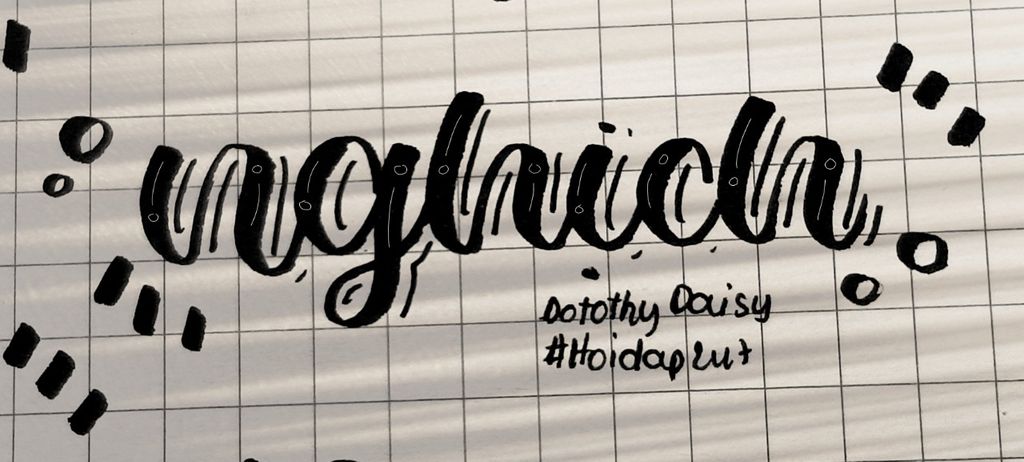 nghich
Dorothy Daisy
#Hoidap247